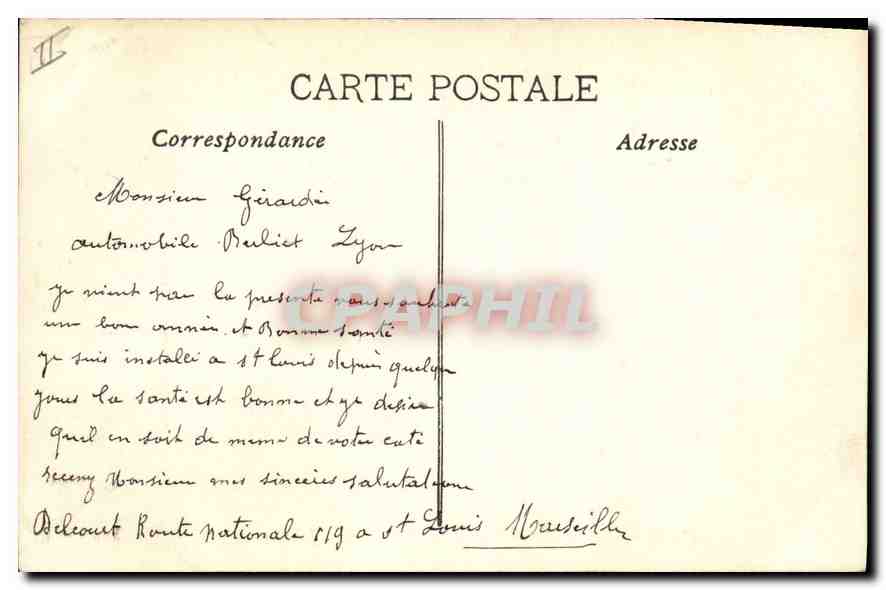 II
CARTE POSTALE
Correspondance
Adresse
Monsieur Gérardin
automobile Berliet Lyon
je vient par la presente vous souhaite
une bonne année et Bonne Santé
je suis installé a st Louis depuis quelque
Jours la santé est bonne et je desire
quel en soit de meme de votre coté
recevez Monsieur mes sinceres salutations
Delcourt Route Nationale 119 a st Louis Marseille
CPAPHIL